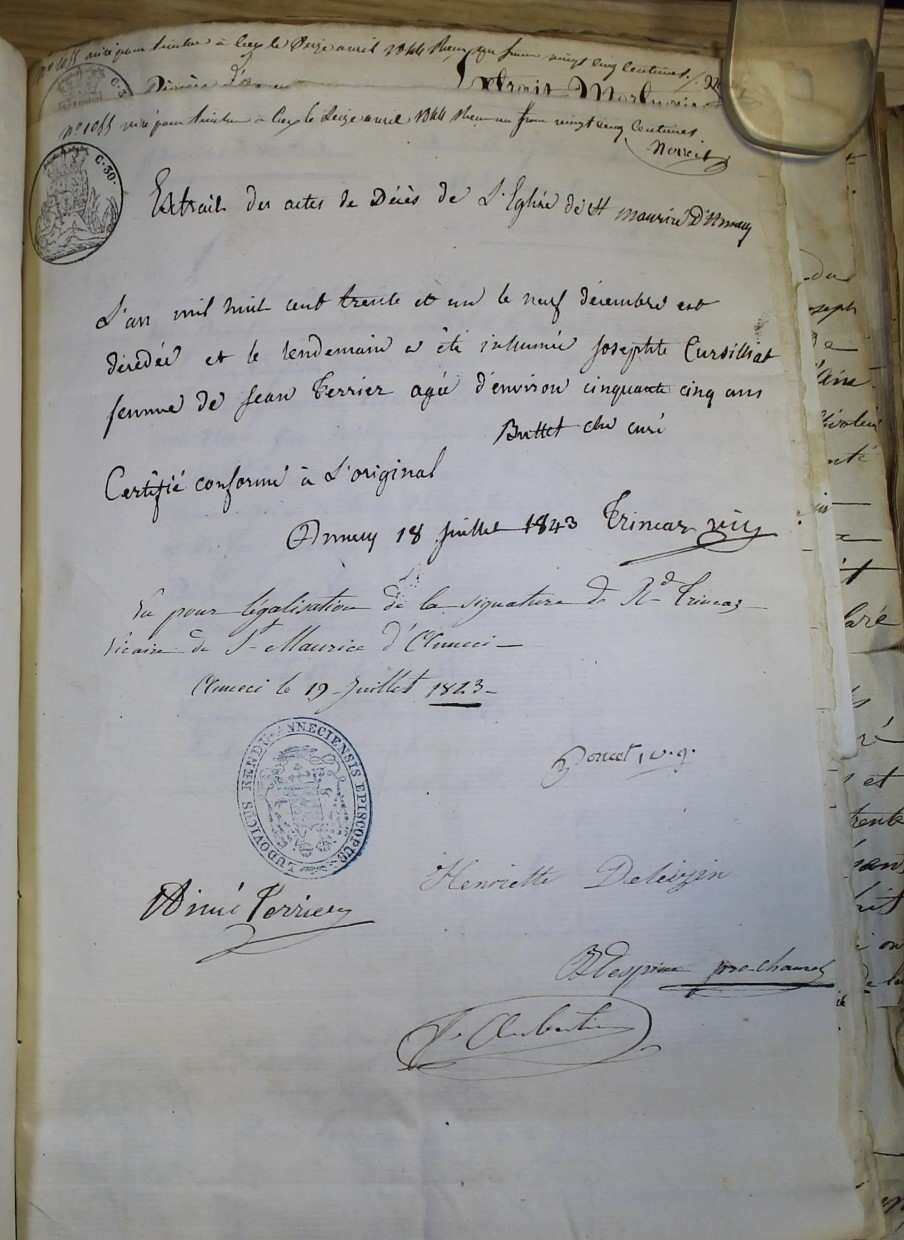 visé pour timbre à Gex le seize avril 1844 Reçu un franc vingt cinq centimes
Diocèse d'
Extrait Mortuaire
n° 1055 visé pour timbre à Gex le seize avril 1844 Reçu un franc vingt cinq centimes
C. 30.
Extrait des actes de Décès de L'Eglise de St maurice D'Annecy
L'an mil huit cent trente et un le neuf décembre est
décédée et le lendemain a été inhumée Josephte Cursilliat
femme de Jean Terrier agée d'environ cinquante cinq ans
Buttet chne curé
Certifié conforme à L'original
Annecy 18 Juillet 1843 Trincaz vic
Vu pour légalisation de la signature de Rd Trincaz
Vicaire de St Maurice d'Anneci
Anneci le 19 Juillet 1843
LUDOVICUS RENDU ANNECIENSIS EPISCOPUS
Poncet v. g.
Henriette Deleizin
Aimé Terrier
Despine pro-chancel